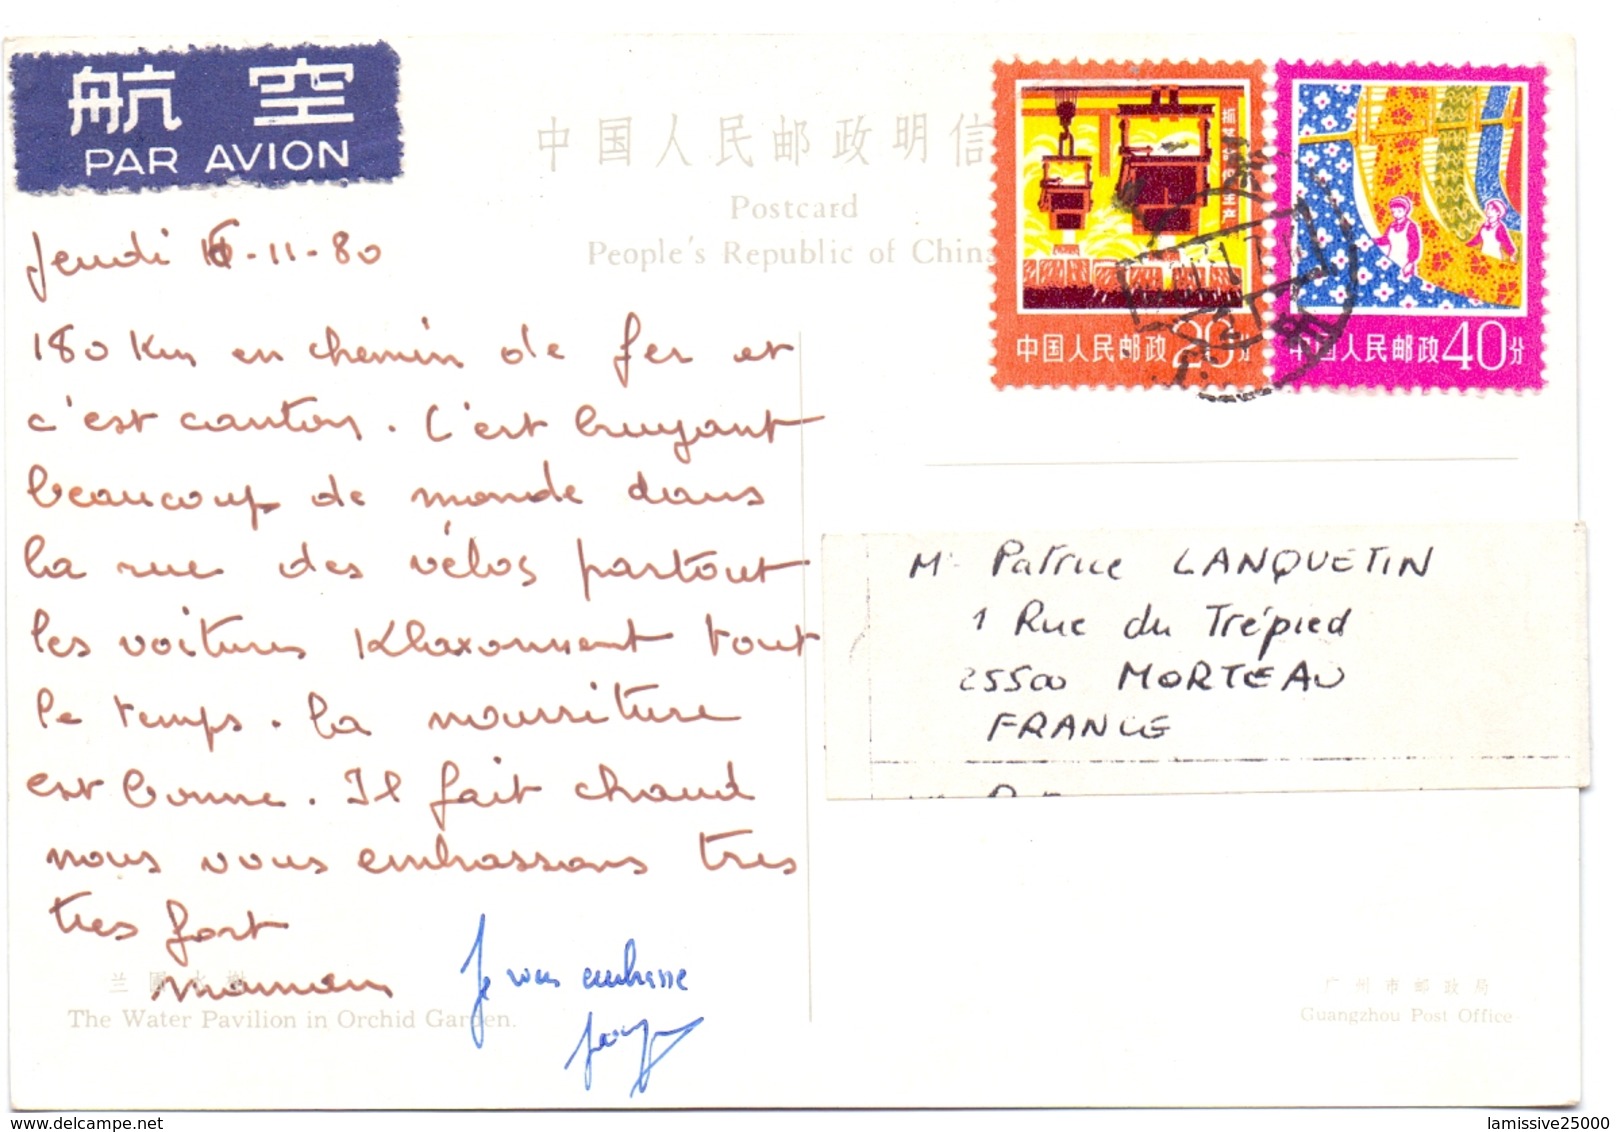 航空
PAR AVION
中国人民邮政明信
Postcard
People's Republic of China
中国人民邮政 20分
中国人民邮政 40分
Jeudi 6-11-80
180 Km en chemin de fer et
c'est canton. C'est bruyant
beaucoup de monde dans
la rue des vélos partout
les voitures Klaxonnent tout
le temps. la nourriture
est bonne. Il fait chaud
nous vous embrassons tres
tres fort
maman
Je vous embrasse
兰圃水榭
The Water Pavilion in Orchid Garden.
Mr Patrice LANQUETIN
1 Rue du Trépied
25500 MORTEAU
FRANCE
广州市邮政局
Guangzhou Post Office
lamissive25000